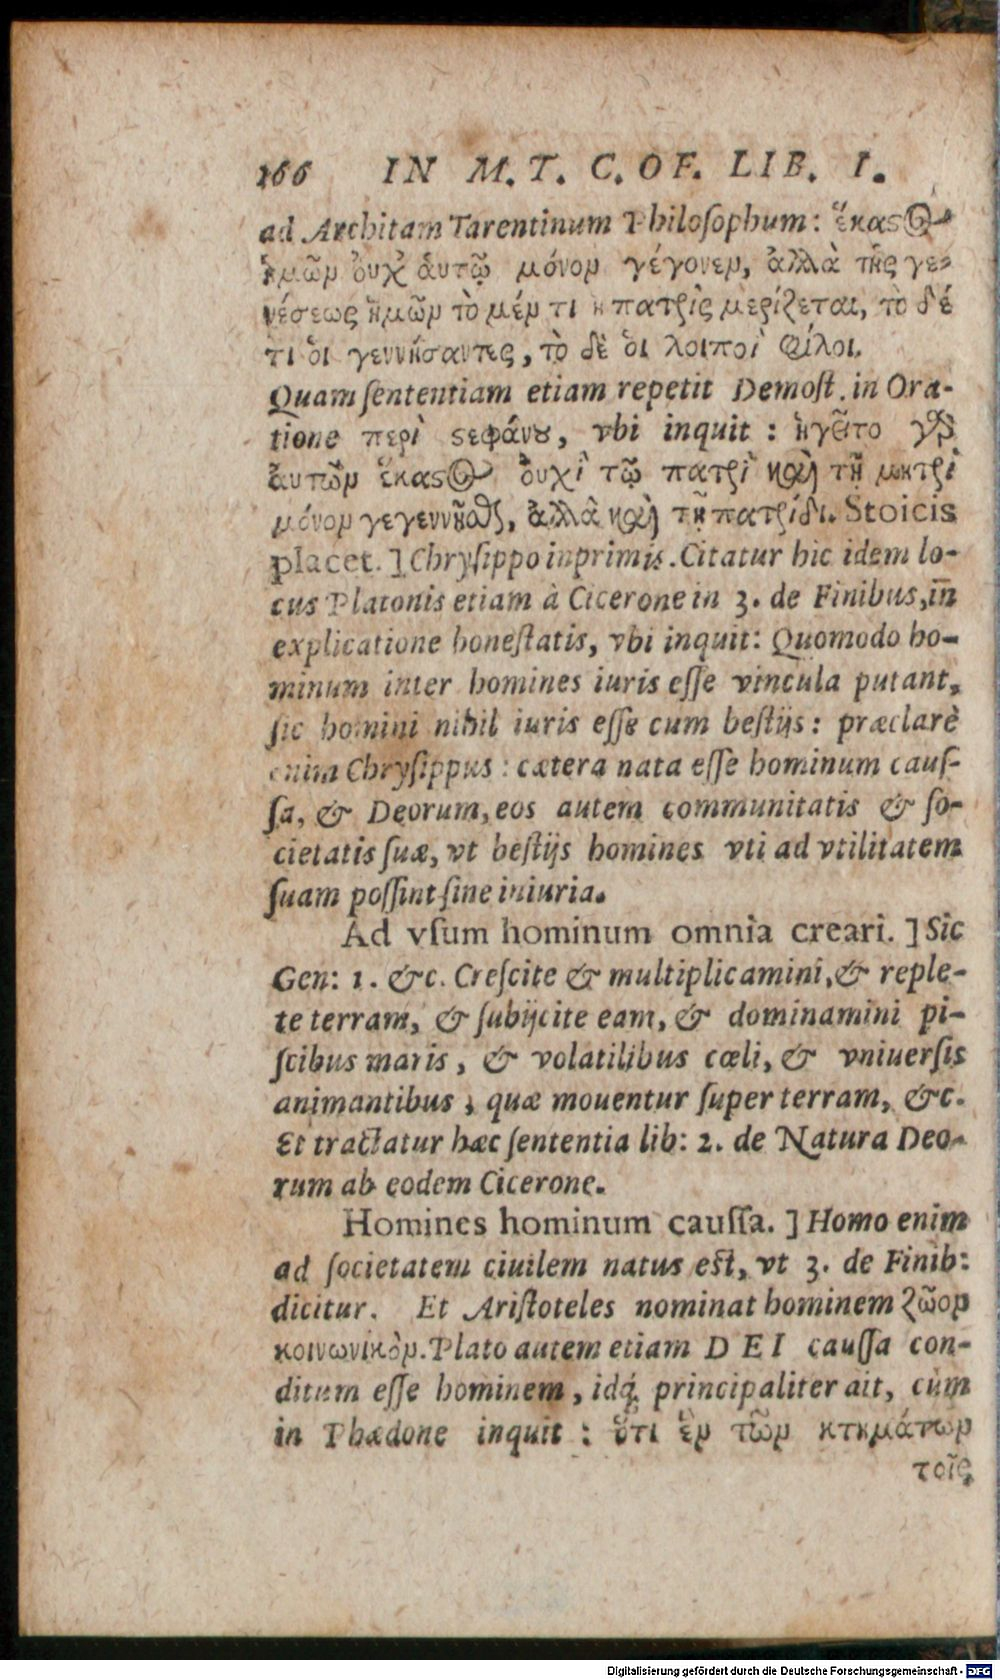 166 IN M. T. C. OF. LIB. I.
ad Architam Tarentinum Philoſophum: ἕκαςος
ἡμῶν ὀυχ̓ ἁυτῷ μόνον γέγονεν, ἀλλὰ τῆς γε-
νέσεως ἡμῶν τὸ μέν τι ἡ πατρὶς μερίζεται, τὸ δέ
τι ὁι γεννήσαντες, τὸ δὲ ὁι λοιποὶ φίλοι.
Quam ſententiam etiam repetit Demoſt. in Ora-
tione περὶ ςεφάνȣ, vbi inquit: ἡγεῖτο γὰρ
ἁυτῶν ἕκαςος ὀυχὶ τῷ πατρὶ καὶ τῇ μητρὶ
μόνον γεγεννῆσθαι, ἀλλὰ καὶ τῇ πατρίδι. Stoicis
placet.] Chryſippo inprimis. Citatur hic idem lo-
cus Platonis etiam à Cicerone in 3. de Finibus, in
explicatione honeſtatis, vbi inquit: Quomodo ho-
minum inter homines iuris eſſe vincula putant,
ſic homini nihil iuris eſſe cum beſtijs: præclarè
enim Chryſippus: cætera nata eſſe hominum cauſ-
ſa, & Deorum, eos autem communitatis & ſo-
cietatis ſuæ, vt beſtijs homines vti ad vtilitatem
ſuam poſſint ſine iniuria.
Ad vſum hominum omnia creari.] Sic
Gen: 1. &c. Creſcite & multiplicamini, & reple-
te terram, & ſubijcite eam, & dominamini pi-
ſcibus maris, & volatilibus cœli, & vniuerſis
animantibus, quæ mouentur ſuper terram, &c.
Et tractatur hæc ſententia lib: 2. de Natura Deo-
rum ab eodem Cicerone.
Homines hominum cauſſa.] Homo enim
ad ſocietatem ciuilem natus eſt, vt 3. de Finib:
dicitur. Et Ariſtoteles nominat hominem ζῶον
κοινωνικὸν. Plato autem etiam DEI cauſſa con-
ditum eſſe hominem, idq́; principaliter ait, cùm
in Phædone inquit: ὅτι ἓν τῶν κτημάτων
τοῖς
Digitalisierung gefördert durch die Deutsche Forschungsgemeinschaft - DFG